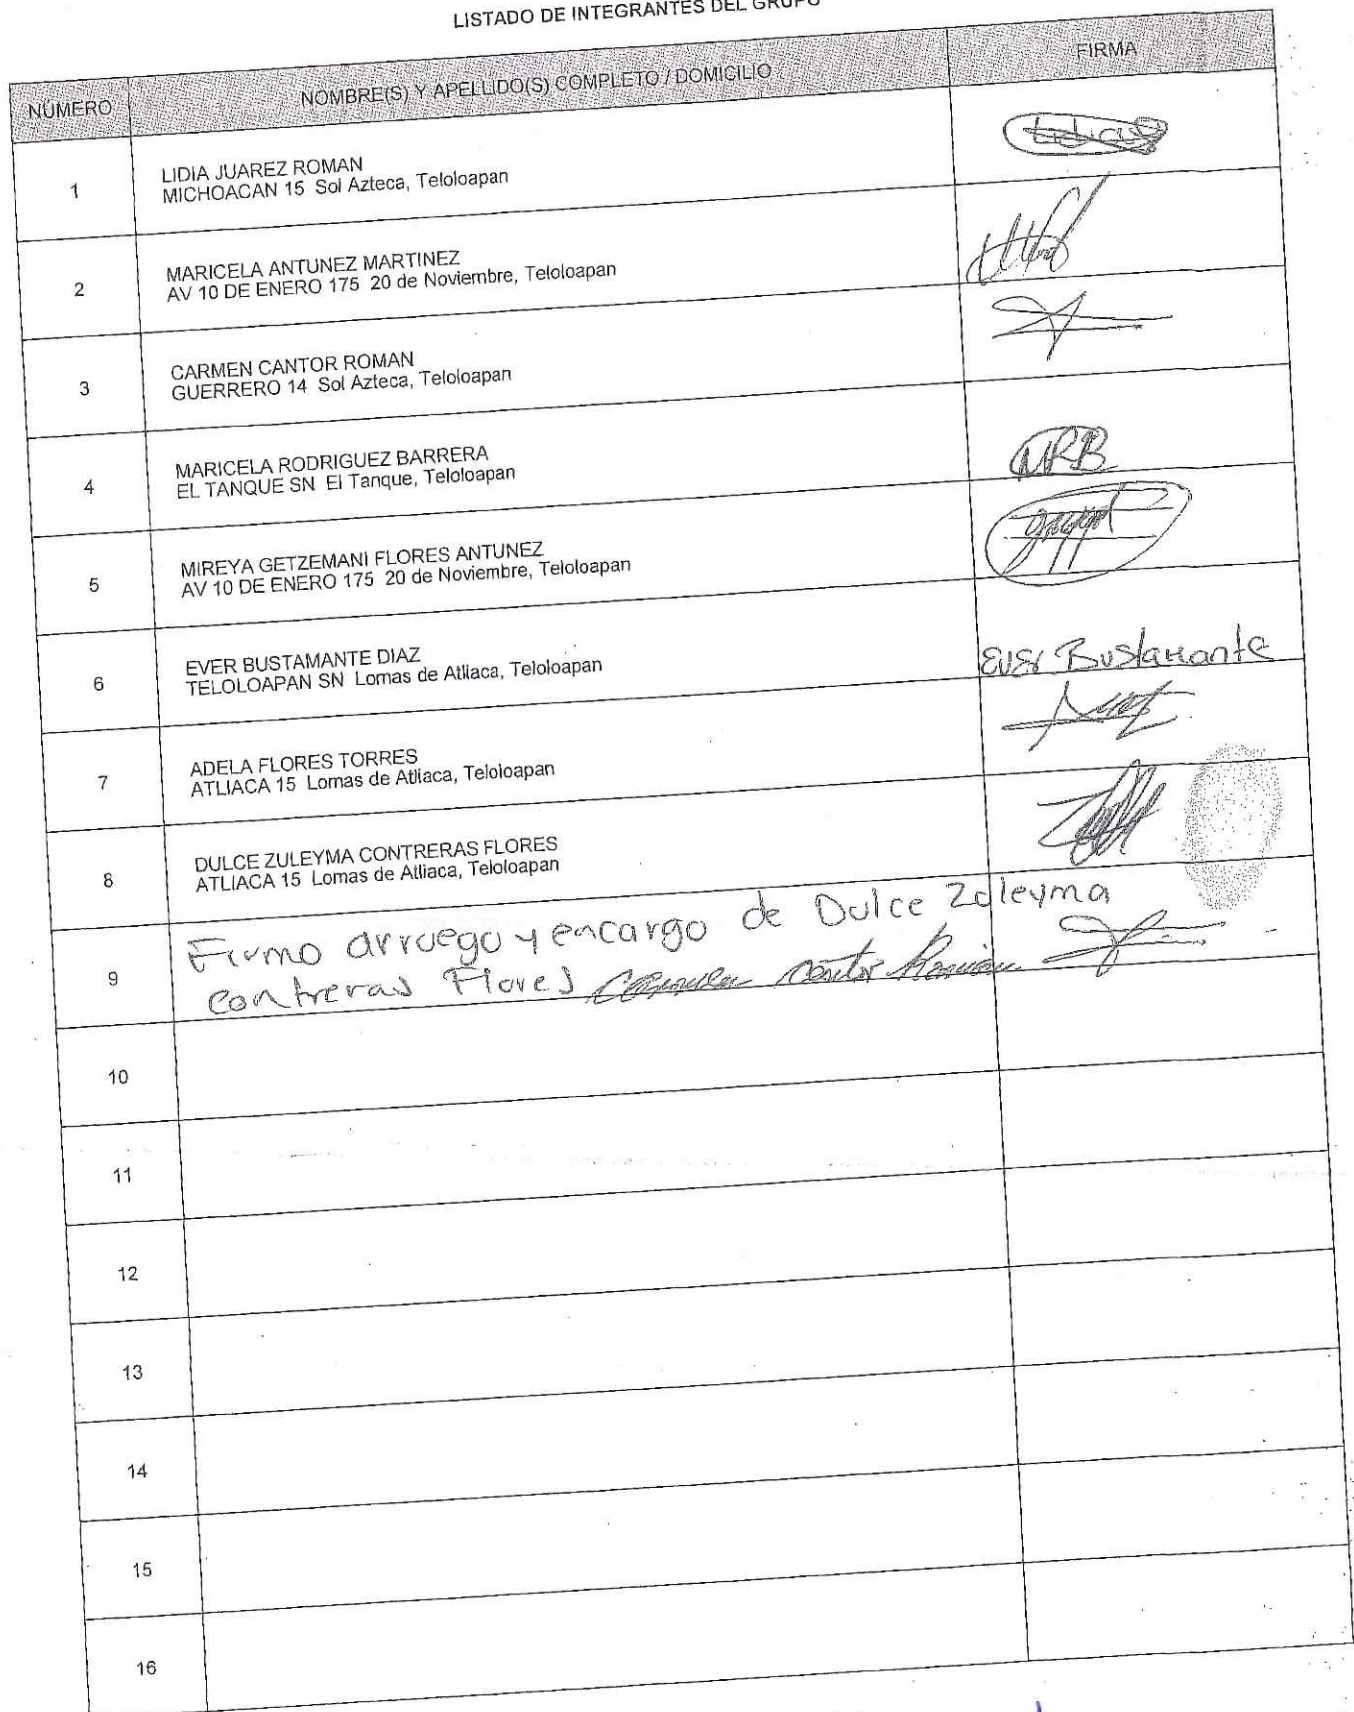 LISTADO DE INTEGRANTES DEL GRUPO
NUMERO NOMBRE(S) Y APELLIDO(S) COMPLETO / DOMICILIO FIRMA
1 LIDIA JUAREZ ROMAN
MICHOACAN 15 Sol Azteca, Teloloapan
2 MARICELA ANTUNEZ MARTINEZ
AV 10 DE ENERO 175 20 de Noviembre, Teloloapan
3 CARMEN CANTOR ROMAN
GUERRERO 14 Sol Azteca, Teloloapan
4 MARICELA RODRIGUEZ BARRERA
EL TANQUE SN El Tanque, Teloloapan
MRB
5 MIREYA GETZEMANI FLORES ANTUNEZ
AV 10 DE ENERO 175 20 de Noviembre, Teloloapan
6 EVER BUSTAMANTE DIAZ
TELOLOAPAN SN Lomas de Atliaca, Teloloapan
Ever Bustamante
7 ADELA FLORES TORRES
ATLIACA 15 Lomas de Atliaca, Teloloapan
8 DULCE ZULEYMA CONTRERAS FLORES
ATLIACA 15 Lomas de Atliaca, Teloloapan
9 Firmo arruego y encargo de Dulce Zuleyma
contreras Flores Carmen Cantor Román
10
11
12
13
14
15
16